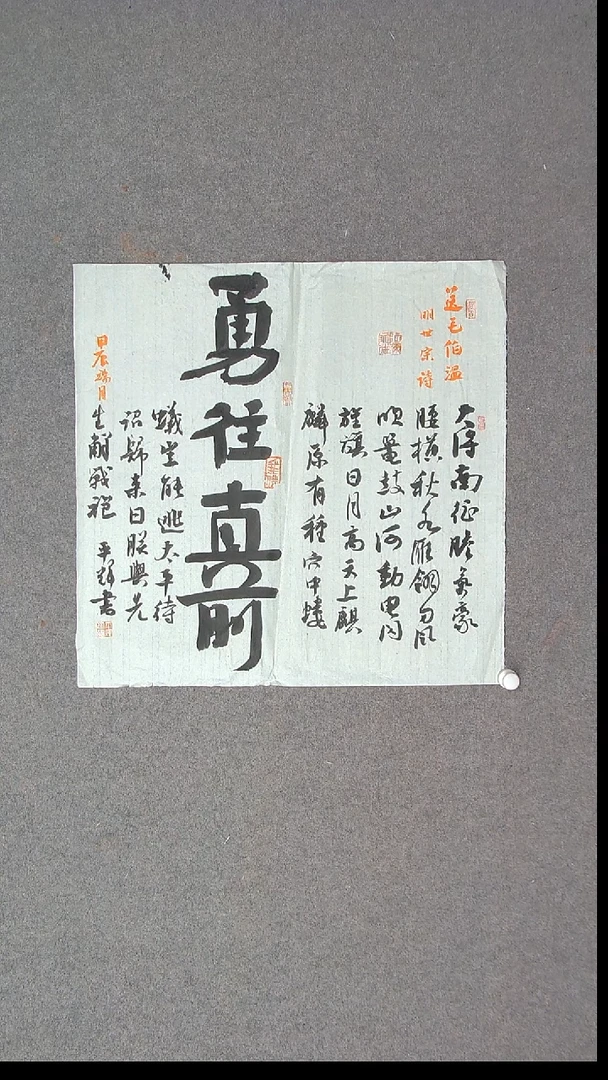 送毛伯温
明世宗诗
大将南征膽氣豪
腰横秋水雁翎刀风
吹鼍鼓山河動電闪
旌旗日月高天上麒
麟原有種穴中螻
勇往直前
蟻豈能逃太平待
詔歸来日朕與先
生解戰袍 平輝書
甲辰端月